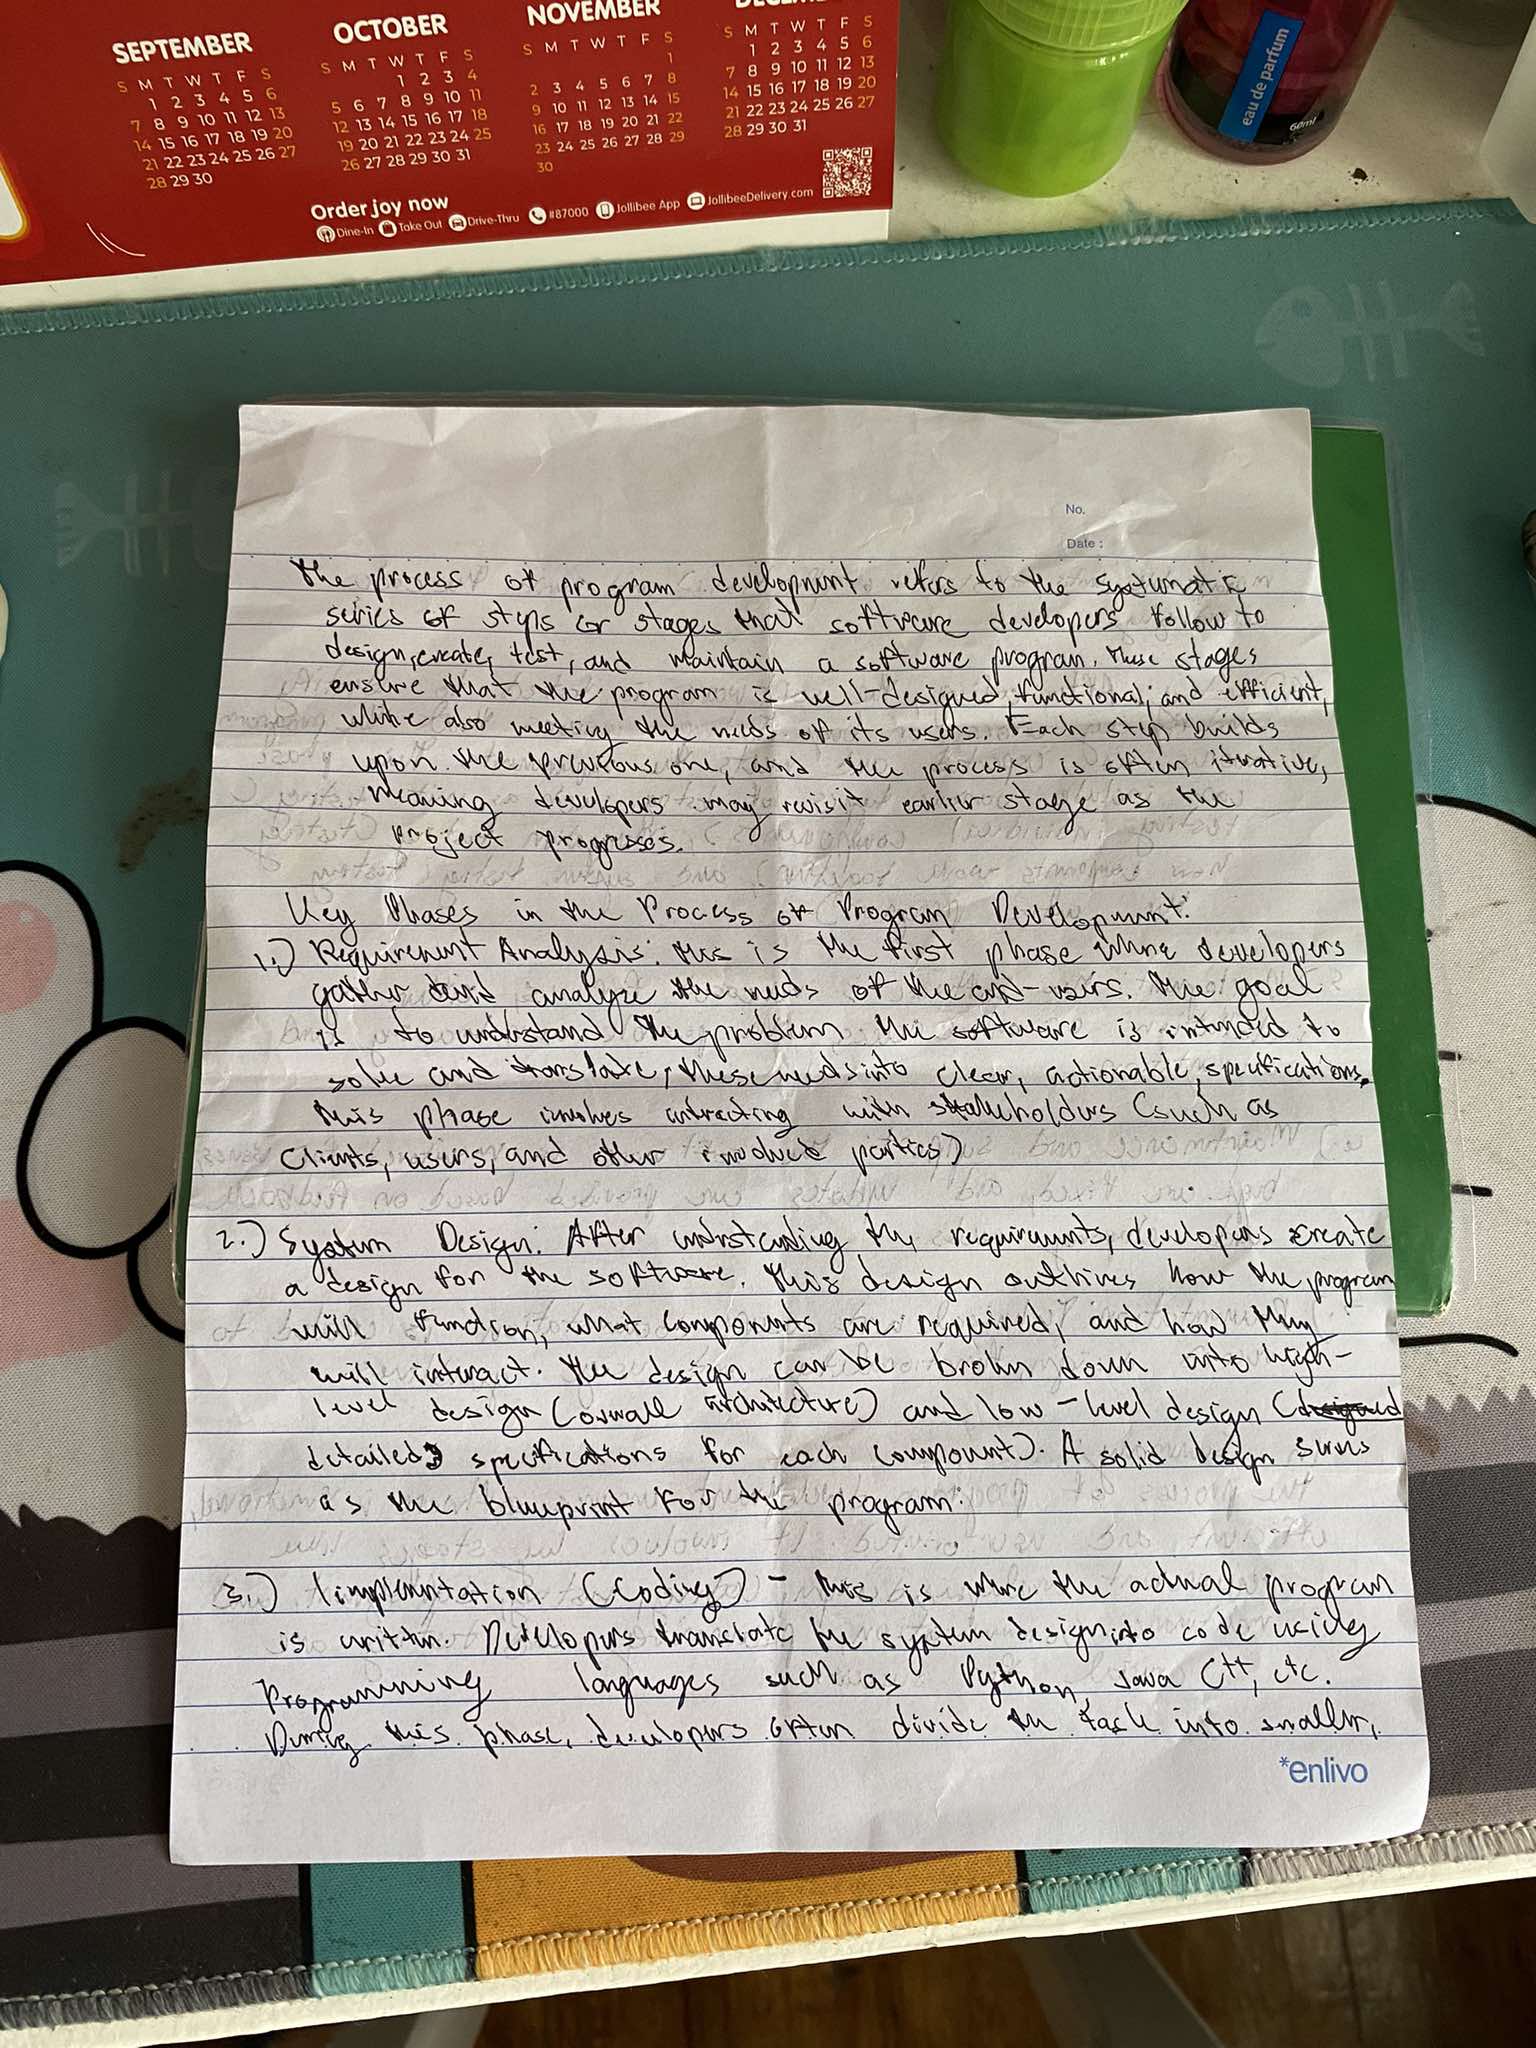 SEPTEMBER
S M T W T F S
1 2 3 4 5 6
7 8 9 10 11 12 13
14 15 16 17 18 19 20
21 22 23 24 25 26 27
28 29 30
OCTOBER
S M T W T F S
1 2 3 4
5 6 7 8 9 10 11
12 13 14 15 16 17 18
19 20 21 22 23 24 25
26 27 28 29 30 31
NOVEMBER
S M T W T F S
1
2 3 4 5 6 7 8
9 10 11 12 13 14 15
16 17 18 19 20 21 22
23 24 25 26 27 28 29
30
S M T W T F S
1 2 3 4 5 6
7 8 9 10 11 12 13
14 15 16 17 18 19 20
21 22 23 24 25 26 27
28 29 30 31
Order joy now
Dine-In Take Out Drive-Thru #87000 Jollibee App JollibeeDelivery.com
eau de parfum
60ml
No.
Date :
The process of program development refers to the systematic
series of steps or stages that software developers follow to
design, create, test, and maintain a software program. These stages
ensure that the program is well-designed, functional, and efficient,
while also meeting the needs of its users. Each step builds
upon the previous one, and the process is often iterative,
meaning developers may revisit earlier stage as the
project progresses.
Key Phases in the Process of Program Development:
1.) Requirement Analysis: this is the first phase where developers
gather and analyze the needs of the end-users. The goal
is to understand the problem the software is intended to
solve and translate, these needs into clear, actionable, specifications.
this phase involves interacting with stakeholders (such as
clients, users, and other involved parties)
2.) System Design: After understanding the requirements, developers create
a design for the software. This design outlines how the program
will function, what components are required, and how they
will interact. The design can be broken down into high-
level design (overall architecture) and low-level design (designed
detailed specifications for each component). A solid design serves
as the blueprint for the program.
3.) Iimplementation (Coding) - this is where the actual program
is written. Developers translate the system design into code using
Programming languages such as Python, Java C++, etc.
During this phase, developers often divide the task into smaller,
*enlivo